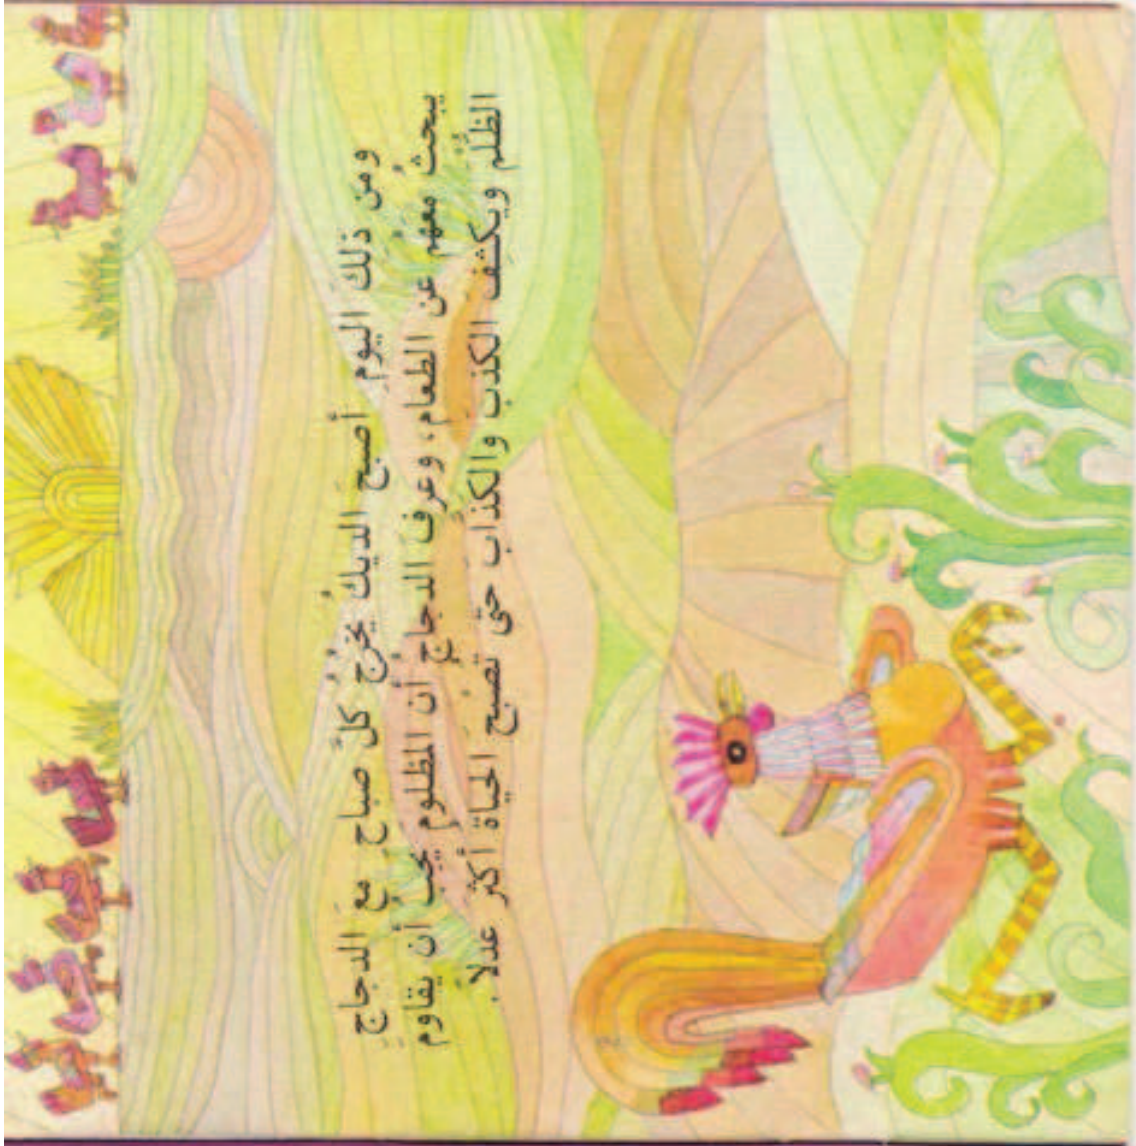 ومن ذلِكَ اليومِ أصبحَ الديكُ يخرُج كلَّ صباح معَ الدجاجِ
يبحثُ معهُم عن الطعام، وعرفَ الدجاجُ أن المظلومَ يجبُ أن يقاومَ
الظلم ويكشِف الكذب والكذّابَ حتى تصبحَ الحياة أكثر عدلاً.